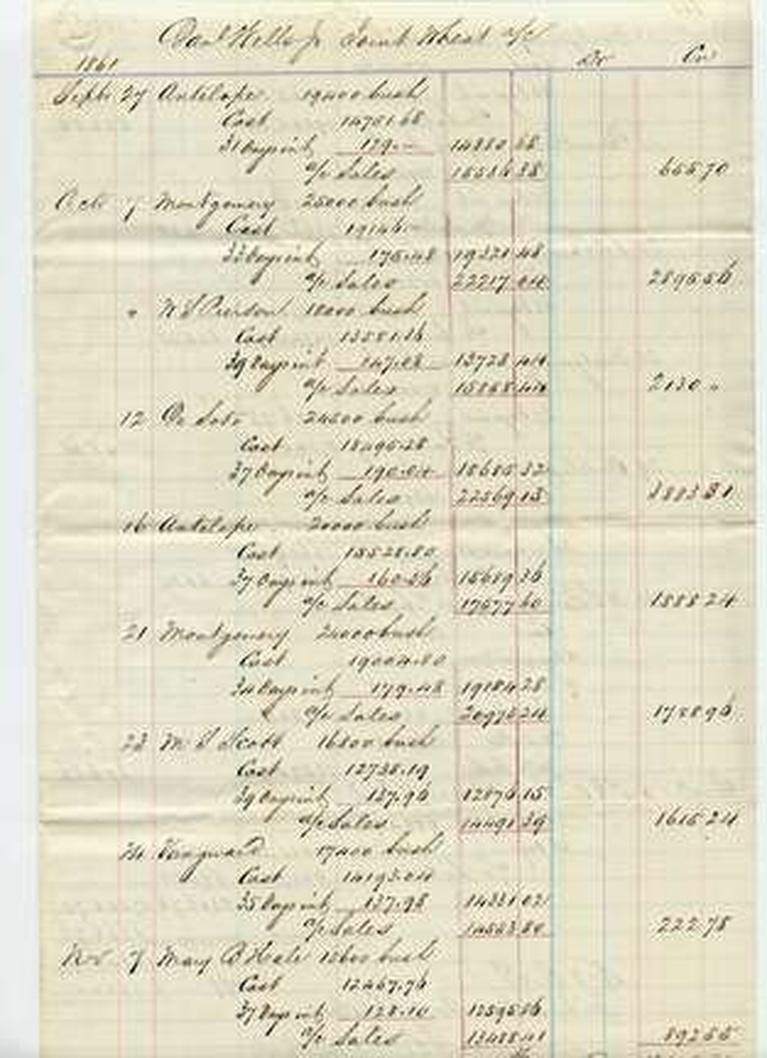 Joint Wheat a/c
1861 Dr Cr
Sept 27 Antelope 19400 bush
Cost 14751.68
31 Days int 129.— 14880.68
a/c Sales 15536.38 655.70
Octo 7 Montgomery 25000 bush
Cost 19146.—
33 Days int 175.48 19321.48
a/c Sales 22217.04 2895.56
" N S Pierson 18000 bush
Cost 13581.36
39 Days int 147.08 13728.44
a/c Sales 15858.44 2130 "
12 De Soto 24500 bush
Cost 18495.28
37 Days int 190.04 18685.32
a/c Sales 22569.13 3883.81
16 Antelope 20000 bush
Cost 15528.80
37 Days int 160.56 15689.36
a/c Sales 17577.60 1888.24
21 Montgomery 24000 bush
Cost 19004.80
34 Days int 179.48 19184.28
a/c Sales 20973.24 1788.96
23 M S Scott 16800 bush
Cost 12738.19
39 Days int 137.96 12876.15
a/c Sales 14491.39 1615.24
24 Vanguard 17400 bush
Cost 14193.04
35 Days int 137.98 14331.02
a/c Sales 14553.80 222.78
Nov 7 Mary B Hale bush
Cost 12467.76
37 Days int 128.10 12595.86
a/c Sales 13488.41 892.55